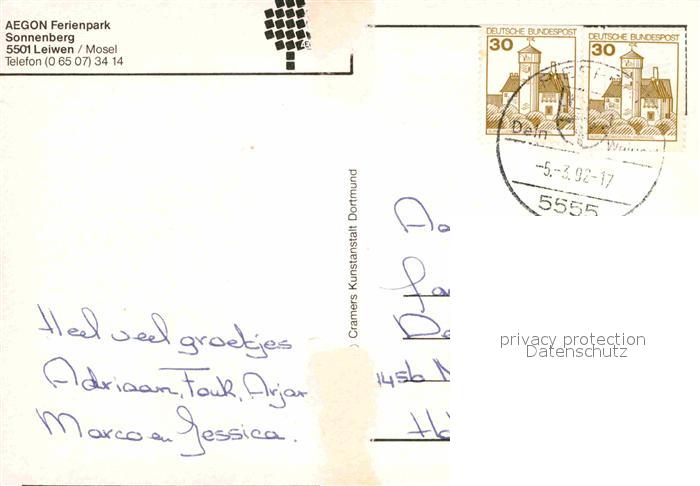 AEGON Ferienpark
Sonnenberg
5501 Leiwen / Mosel
Telefon (0 65 07) 34 14
DEUTSCHE BUNDESPOST
30
DEUTSCHE BUNDESPOST
30
Dein
-5.-3.92-17
5555
Cramers Kunstanstalt Dortmund
Heel veel groetjes
Adriaan, Fouk, Arjan
Marco en Jessica.
1456
privacy protection
Datenschutz